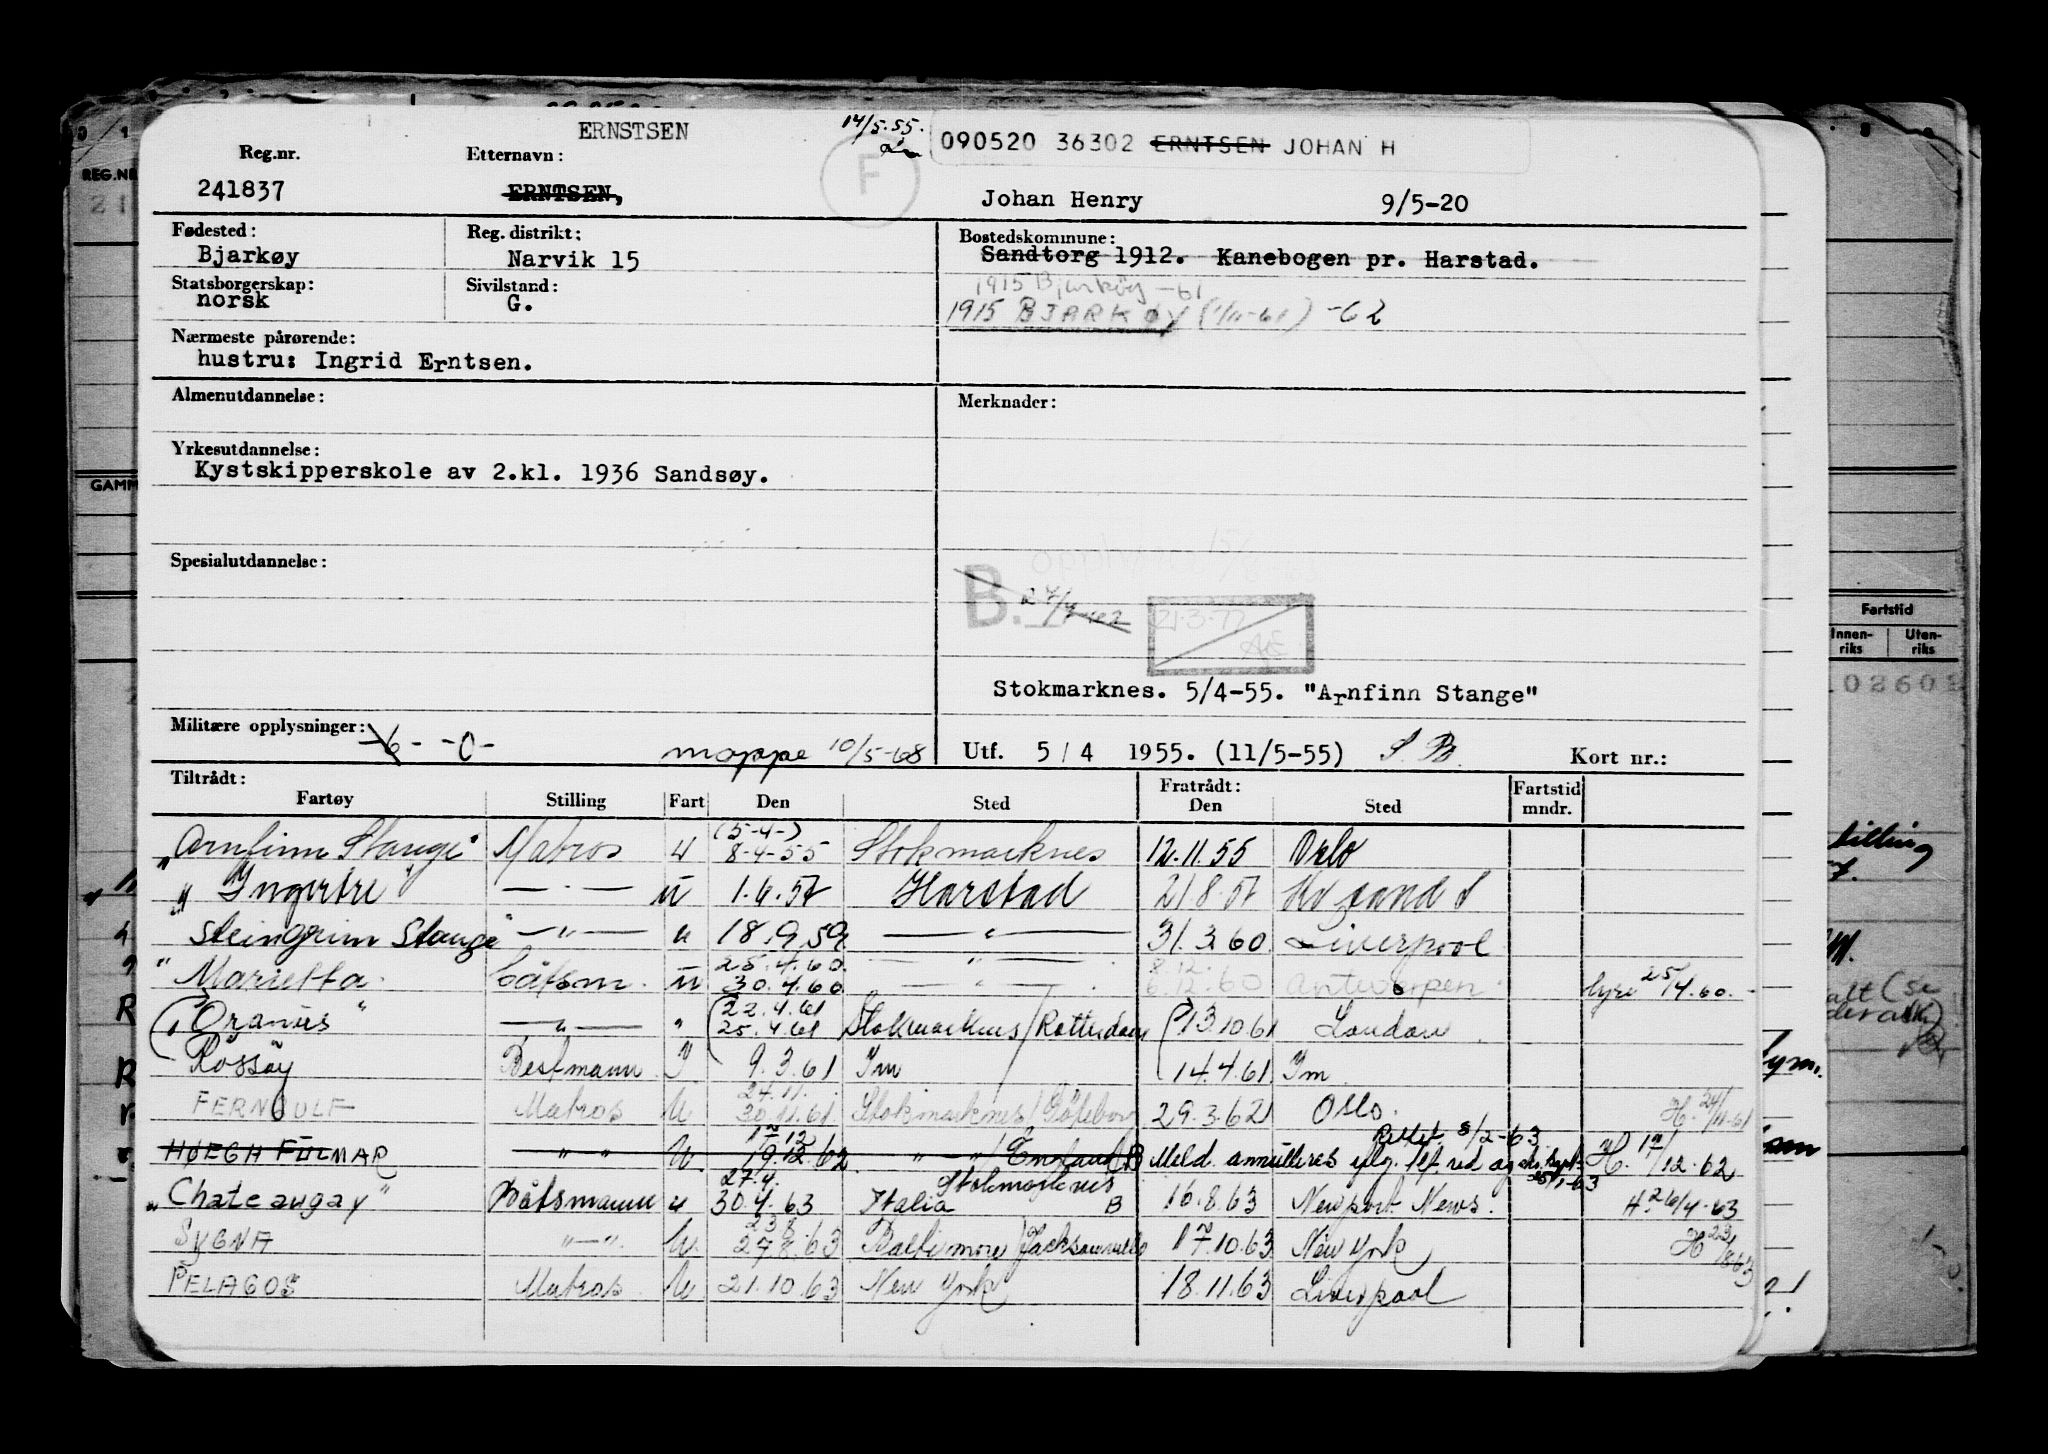 ERNSTSEN 14/5.55. 090520 36302 ERNTSEN JOHAN H
Reg.nr. Etternavn: F
241837 ERNTSEN, Johan Henry 9/5-20
Fødested: Reg. distrikt: Bostedskommune:
Bjarkøy Narvik 15 Sandtorg 1912. Kanebogen pr. Harstad.
Statsborgerskap: Sivilstand: 1915 Bjarkøy -61
norsk G. 1915 BJARKØY (1/11-61) -62
Nærmeste pårørende:
hustru: Ingrid Erntsen.
Almenutdannelse: Merknader:
Yrkesutdannelse:
Kystskipperskole av 2.kl. 1936 Sandsøy.
Spesialutdannelse:
B. 21.3.72
Stokmarknes. 5/4-55. "Arnfinn Stange"
Militære opplysninger: -6- -0- moppe 10/5-68 Utf. 5/4 1955. (11/5-55) S.B. Kort nr.:
Tiltrådt: Fratrådt: Fartstid
Fartøy Stilling Fart Den Sted Den Sted mndr.
(5-4-)
"Arnfinn Stange" Matros u 8-4-55 Stokmarknes 12.11.55 Oslo
" — " — u 1.6.57 Harstad 21.8.57 Kr sand S
Steingrim Stange — " — u 18.9.59 — " — 31.3.60 Liverpool
25.4.60 — " — 8.12.
"Marietta båtsm. u 30.4.60 — " — 6.12.60 Antwerpen 25/4.60.
22.4.61
("Oranius" — " — " 25.4.61 Stokmarknes/Rotterdam 13.10.61 London
Rossøy Bestmann I 9.3.61 Im 14.4.61 Im
24.11.
FERNGULF Matros U 30.11.61 Stokmarknes/Göteborg 29.3.62 Oslo. H. 24/11-61
17.12 8/2-63
HØEGH FULMAR — " — U 19.12.62 " — "/England B Meld. annulleres H. 17/12.62
27.4. Stokmarknes
"Chateaugay" Båtsmann u 30.4.63 Italia B 16.8.63 Newport News. H. 26/4-63
23.8
SYGNA " — " U. 27.8.63 Baltimore/Jacksonville 17.10.63 New York H 23/8 63
PELAGOS Matros U 21.10.63 New York 18.11.63 Liverpool
REG.NR
GAMM
Fartstid
Innen-riks Uten-riks
02602